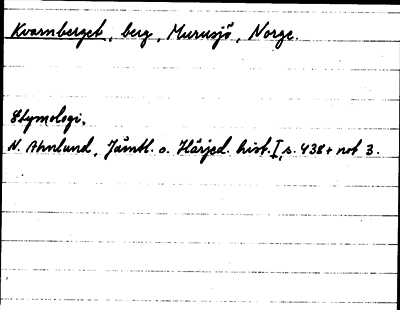 Kvarnberget, berg, Murusjö, Norge.
Etymologi.
N. Ahnlund, Jämtl. o. Härjed. hist. I, s. 438 + not 3.